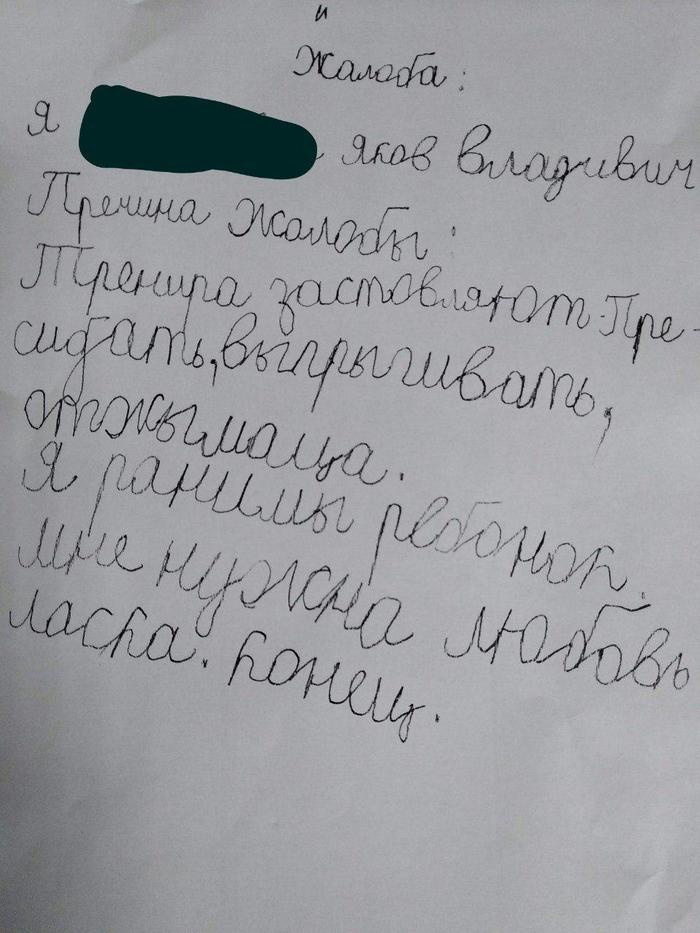 и
Жалоба:
Я Яков Владивич
Пречина жалобы:
Тренира застовляют:Пре-
сидать, выпрыгивать,
отжымаца.
Я ранимы ребонок.
мне нужна любовь
ласка. Конец.